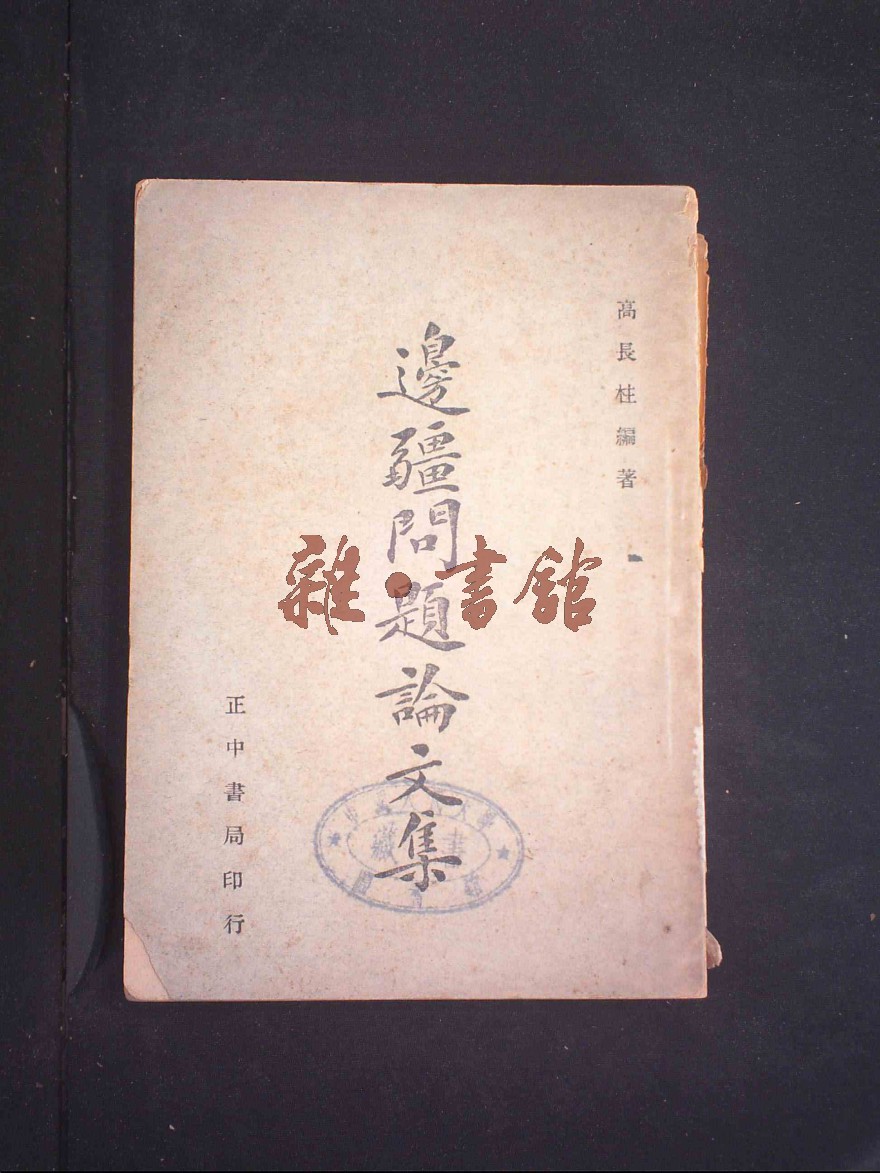 高長柱編著
邊疆問題論文集
正中書局印行
雜·書館
藏書